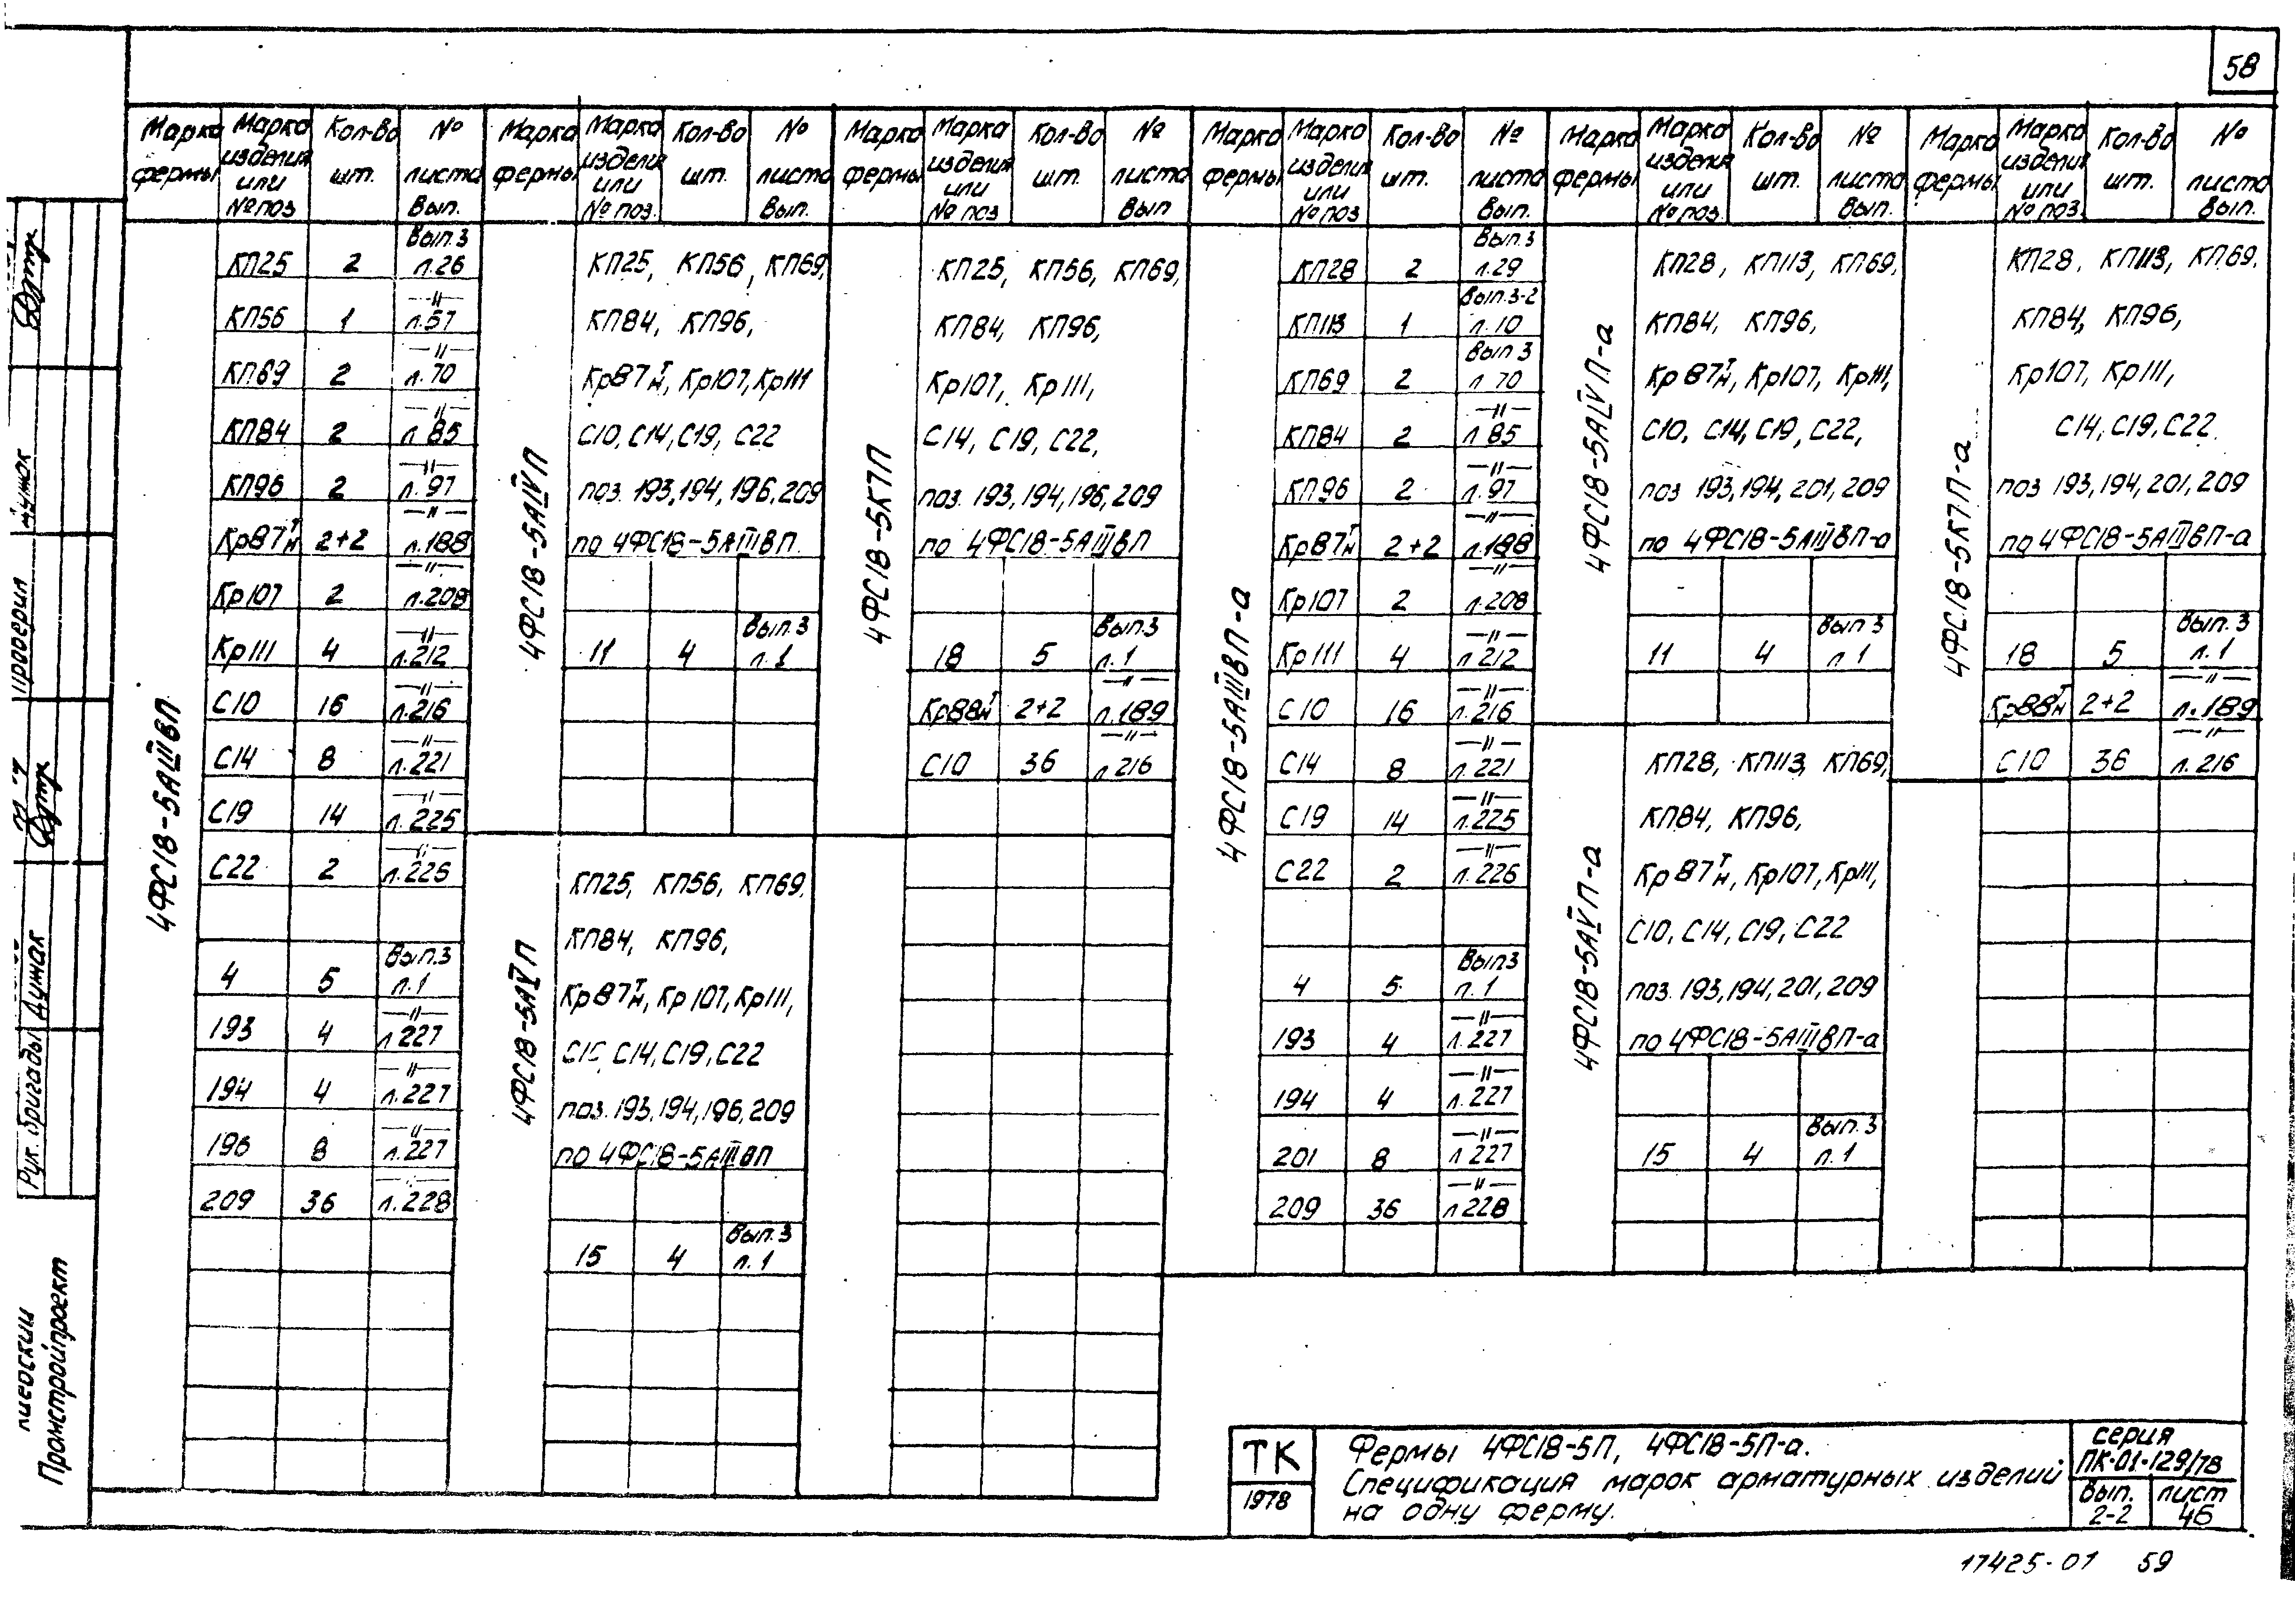 58
Марка фермы | Марка изделия или № поз. | Кол-во шт. | № листа Вып.
4ФС18-5АIIIвП
КП25 2 Вып.3 л.26
КП56 1 —"— л.57
КП69 2 —"— л.70
КП84 2 —"— л.85
КП96 2 —"— л.97
Кр87т/н 2+2 —"— л.188
Кр107 2 —"— л.208
Кр111 4 —"— л.212
С10 16 —"— л.216
С14 8 —"— л.221
С19 14 —"— л.225
С22 2 —"— л.226
4 5 Вып.3 л.1
193 4 —"— л.227
194 4 —"— л.227
196 8 —"— л.227
209 36 —"— л.228
Марка фермы | Марка изделия или № поз. | Кол-во шт. | № листа Вып.
4ФС18-5АIVП
КП25, КП56, КП69,
КП84, КП96,
Кр87т/н, Кр107, Кр111
С10, С14, С19, С22
поз. 193, 194, 196, 209
по 4ФС18-5АIIIвП.
11 4 Вып.3 л.1
4ФС18-5АVП
КП25, КП56, КП69,
КП84, КП96,
Кр87т/н, Кр107, Кр111,
С10, С14, С19, С22
поз. 193, 194, 196, 209
по 4ФС18-5АIIIвП
15 4 Вып.3 л.1
Марка фермы | Марка изделия или № поз | Кол-во шт. | № листа Вып
4ФС18-5К7П
КП25, КП56, КП69,
КП84, КП96,
Кр107, Кр111,
С14, С19, С22,
поз. 193, 194, 196, 209
по 4ФС18-5АIIIвП
18 5 Вып.3 л.1
Кр88т/н 2+2 —"— л.189
С10 36 —"— л.216
Марка фермы | Марка изделия или № поз | Кол-во шт. | № листа Вып.
4ФС18-5АIIIвП-а
КП28 2 Вып.3 л.29
КП113 1 Вып.3-2 л.10
КП69 2 Вып 3 л.70
КП84 2 —"— л.85
КП96 2 —"— л.97
Кр87т/н 2+2 —"— л.188
Кр107 2 —"— л.208
Кр111 4 —"— л.212
С10 16 —"— л.216
С14 8 —"— л.221
С19 14 —"— л.225
С22 2 —"— л.226
4 5 Вып3 л.1
193 4 —"— л.227
194 4 —"— л.227
201 8 —"— л.227
209 36 —"— л.228
Марка фермы | Марка изделия или № поз. | Кол-во шт. | № листа Вып.
4ФС18-5АIVП-а
КП28, КП113, КП69,
КП84, КП96,
Кр87т/н, Кр107, Кр111,
С10, С14, С19, С22,
поз 193, 194, 201, 209
по 4ФС18-5АIIIвП-а
11 4 Вып 3 л 1
4ФС18-5АVП-а
КП28, КП113, КП69,
КП84, КП96,
Кр87т/н, Кр107, Кр111,
С10, С14, С19, С22
поз. 193, 194, 201, 209
по 4ФС18-5АIIIвП-а
15 4 Вып.3 л.1
Марка фермы | Марка изделия или № поз. | Кол-во шт. | № листа Вып.
4ФС18-5К7П-а
КП28, КП113, КП69,
КП84, КП96,
Кр107, Кр111,
С14, С19, С22
поз 193, 194, 201, 209
по 4ФС18-5АIIIвП-а
18 5 Вып.3 л.1
Кр88т/н 2+2 —"— л.189
С10 36 —"— л.216
Рук. бригады Думак
проверил Думак
Промстройпроект
ТК
1978
Фермы 4ФС18-5П, 4ФС18-5П-а.
Спецификация марок арматурных изделий
на одну ферму.
серия
ПК-01-129/78
Вып. 2-2
лист 46
17425-01 59